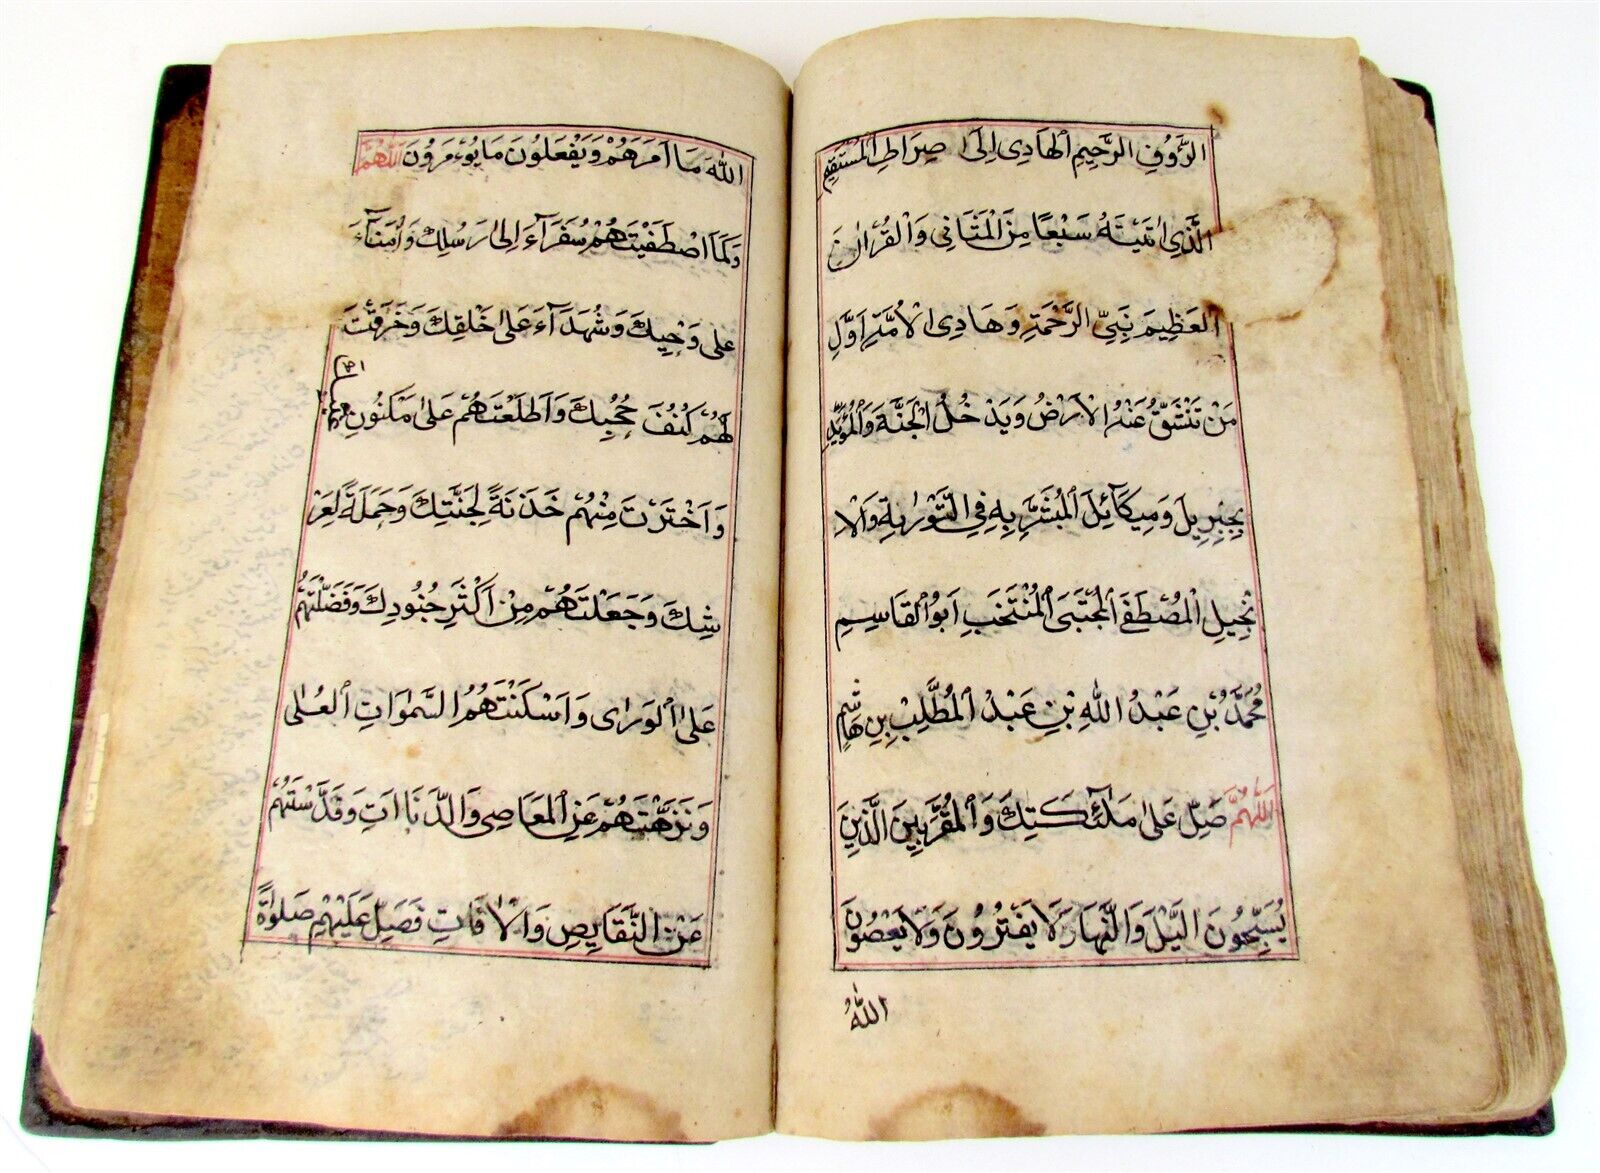 الرَّؤُفِ الرَّحِيمِ الْهَادِى اِلَى صِرَاطِ الْمُسْتَقِيمِ
الَّذِى اٰتَيْتَهُ سَبْعًا مِنَ الْمَثَانِى وَالْقُرْاٰنَ
الْعَظِيمَ نَبِىِّ الرَّحْمَةِ وَهَادِى الْاُمَّةِ اَوَّلِ
مَنْ تَنْشَقُّ عَنْهُ الْاَرْضُ وَيَدْخُلُ الْجَنَّةَ وَالْمُؤَيَّدِ
بِجِبْرِيلَ وَمِيكَآئِلَ الْمُبَشَّرِ بِهِ فِى التَّوْرٰيةِ وَالْاِ
نْجِيلِ الْمُصْطَفَى الْمُجْتَبَى الْمُنْتَخَبِ اَبُو الْقَاسِمِ
مُحَمَّدُ بْنِ عَبْدُ اللّٰهِ بْنِ عَبْدُ الْمُطَّلِبِ بِنِ هَاشِمِ
اَللّٰهُمَّ صَلِّ عَلٰى مَلٰٓئِكَتِكَ وَالْمُقَرَّبِينَ الَّذِينَ
يُسَبِّحُونَ الَّيْلَ وَالنَّهَارَ لَا يَفْتُرُونَ وَلَا يَعْصُونَ
اللّٰهُ
اللّٰهَ مَا اَمَرَهُمْ وَيَفْعَلُونَ مَا يُوءْمَرُونَ اَللّٰهُمَّ
وَكَمَا اصْطَفَيْتَهُمْ سُفَرَآءَ اِلٰى رُسُلِكَ وَاُمَنَآءَ
عَلٰى وَحْيِكَ وَشُهَدَآءَ عَلٰى خَلْقِكَ وَخَرَقْتَ
لَهُمْ كُنُفَ حُجُبِكَ وَاَطْلَعْتَهُمْ عَلٰى مَكْنُونِ
وَاخْتَرْتَ مِنْهُمْ خَذَنَةً لِجَنَّتِكَ وَحَمَلَةً لِعَرْ
شِكَ وَجَعَلْتَهُمْ مِنْ اَكْثَرِ جُنُودِكَ وَفَضَّلْتَهُمْ
عَلَى الْوَرٰى وَاَسْكَنْتَهُمُ السَّمٰوَاتِ الْعُلٰى
وَنَزَّهْتَهُمْ عَنِ الْمَعَاصِى وَالدَّنَااٰتِ وَقَدَّسْتَهُمْ
عَنِ النَّقَايِصِ وَالْاٰفَاتِ فَصَلِّ عَلَيْهِمْ صَلٰوةً